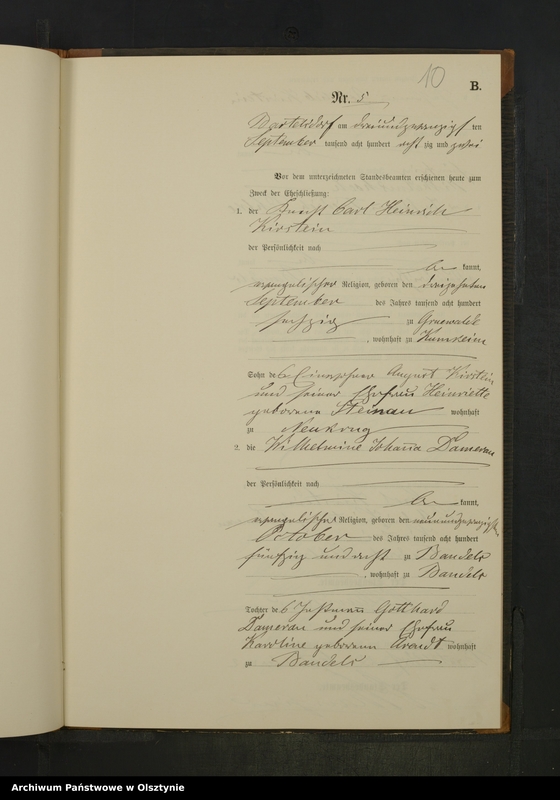 10
B.
Nr. 5
Bartelsdorf am dreiundzwanzigsten
September tausend acht hundert acht zig und zwei
Vor dem unterzeichneten Standesbeamten erschienen heute zum
Zweck der Eheschließung:
1. der Knecht Carl Heinrich
Kirstein
der Persönlichkeit nach
be kannt,
evangelischer Religion, geboren den dreizehnten
September des Jahres tausend acht hundert
sechzig zu Gruenwalde
, wohnhaft zu
Sohn des Einwohner August Kirstein
und seiner Ehefrau Heinriette
geborene Steinau wohnhaft
zu Neukrug
2. die Wilhelmine Johanna Damerau
der Persönlichkeit nach
be kannt,
evangelischer Religion, geboren den neunundzwanzigsten
October des Jahres tausend acht hundert
fünfzig und acht zu Bandels
, wohnhaft zu Bandels
Tochter des Instmann Gotthard
Damerau und seiner Ehefrau
Karoline geborenen Arendt wohnhaft
zu Bandels
Archiwum Państwowe w Olsztynie